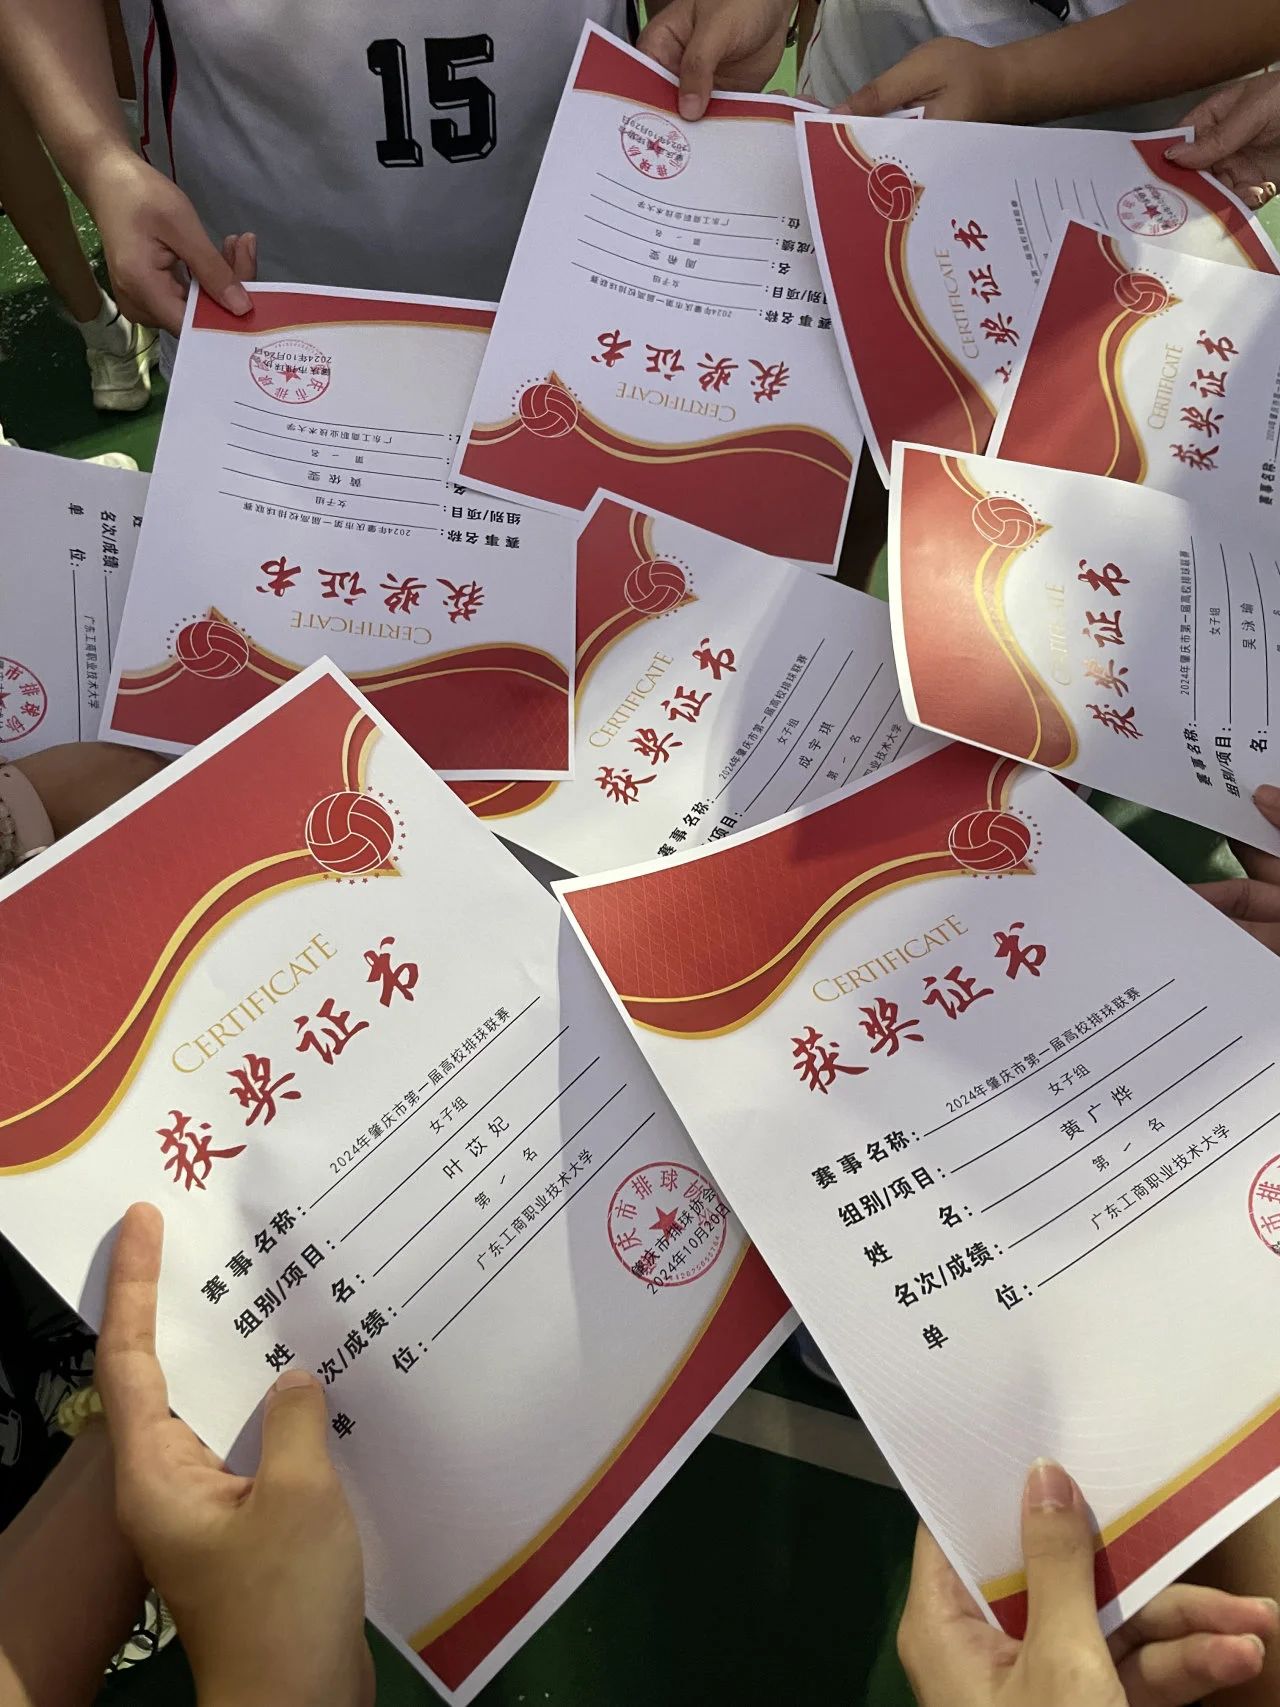 15
2024年10月20日
肇庆市排球协会
广东工商职业技术大学
位：
第一名
名：
女子组
组别/项目：
2024年肇庆市第一届高校排球联赛
赛事名称：
获奖证书
CERTIFICATE
CERTIFICATE
获奖证书
CERTIFICATE
获奖证书
赛事名称：
2024年10月20日
广东工商职业技术大学
第一名
黄依雯
女子组
组别/项目：
2024年肇庆市第一届高校排球联赛
赛事名称：
获奖证书
CERTIFICATE
名次/成绩：
单位：
广东工商职业技术大学
CERTIFICATE
获奖证书
赛事名称：2024年肇庆市第一届高校排球联赛
女子组
成宇琪
第一名
CERTIFICATE
获奖证书
赛事名称：2024年肇庆市第一届高校排球联赛
组别/项目：女子组
名：吴泳瑜
CERTIFICATE
获奖证书
赛事名称：2024年肇庆市第一届高校排球联赛
组别/项目：女子组
姓名：叶苡妃
次/成绩：第一名
单位：广东工商职业技术大学
庆市排球协
肇庆市排球协会
2024年10月20日
CERTIFICATE
获奖证书
赛事名称：2024年肇庆市第一届高校排球联赛
组别/项目：女子组
姓名：黄广烨
名次/成绩：第一名
单位：广东工商职业技术大学